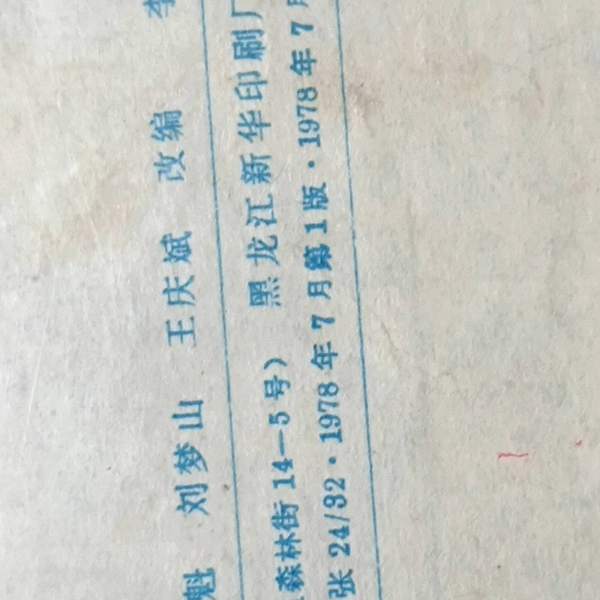 魁 刘梦山 王庆斌 改编 李
森林街14—5号） 黑龙江新华印刷厂
张 24/32·1978年7月第1版·1978年7月